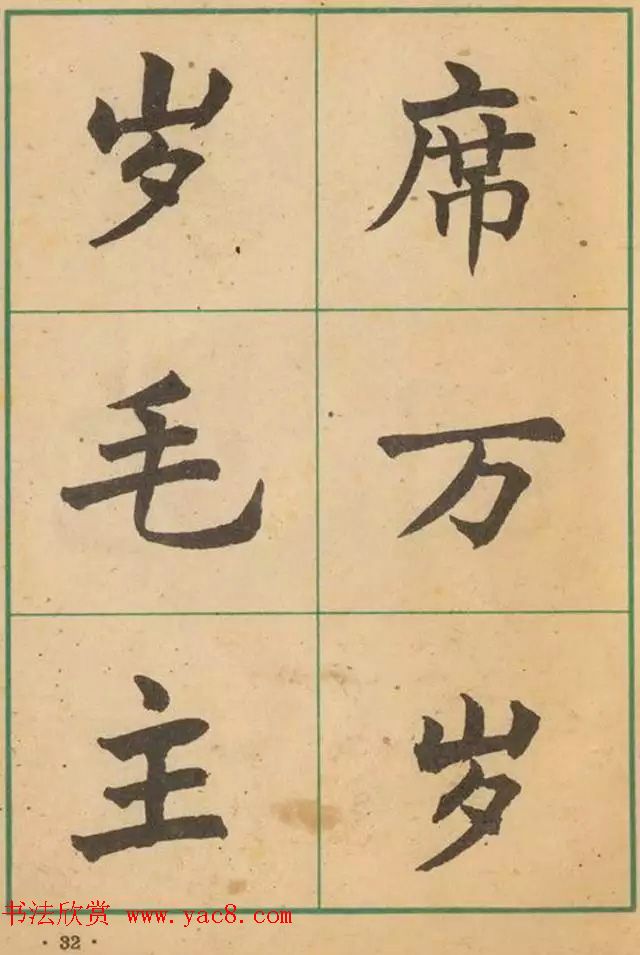 岁毛主
席万岁
书法欣赏 www.yac8.com
· 32 ·